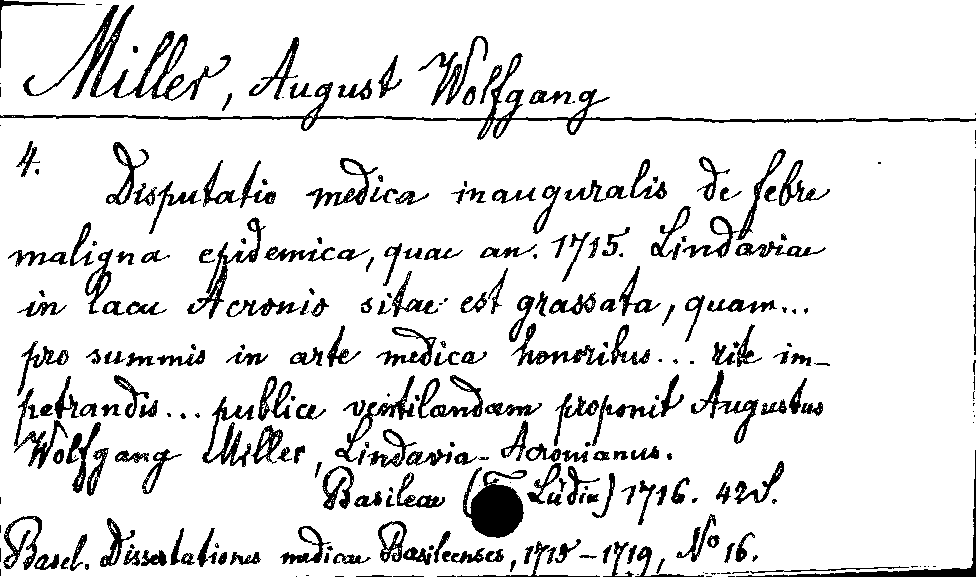 Miller, August Wolfgang
4.
Disputatio medica inauguralis de febre
maligna epidemica, quae an. 1715. Lindaviae
in lacu Acronio sitae est grassata, quam...
pro summis in arte medica honoribus... rite im-
petrandis... publice ventilandam proponit Augustus
Wolfgang Miller, Lindavia-Acronianus.
Basileae ( Lüdin) 1716. 42 S.
Basel. Dissertationes medicae Basileenses, 1715-1719, No 16.